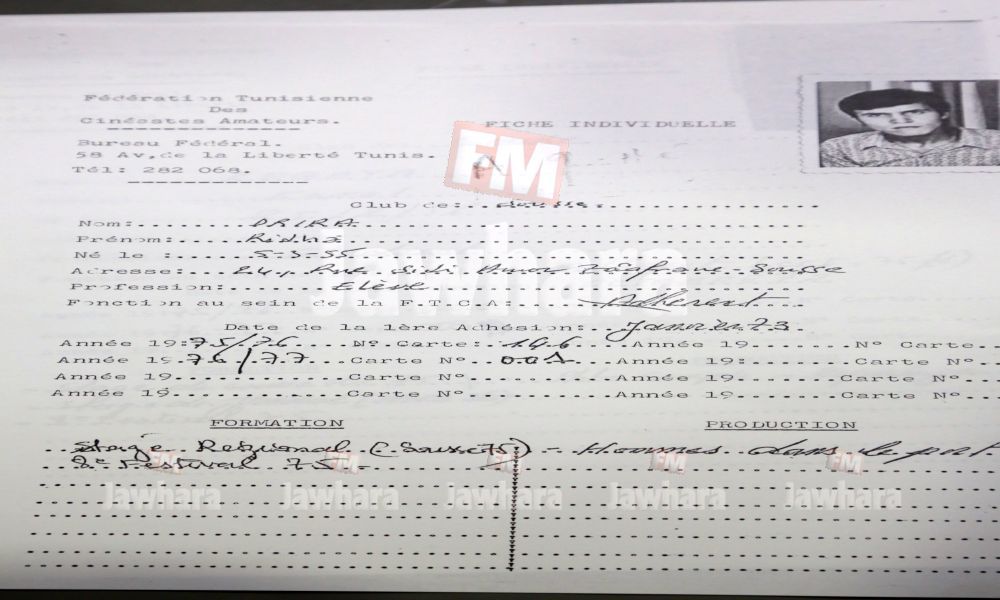 Fédération Tunisienne
Des
Cinéastes Amateurs.
Bureau Fédéral.
58 Av, de la Liberté Tunis.
Tél: 282 068.
FICHE INDIVIDUELLE
FM
Club de: Sousse
Nom: DRIRA
Prénom: Ridha
Né le : 5-3-55
Adresse: 24, Rue Sidi Amor - Sousse
Profession: Elève
Fonction au sein de la F.T.C.A: Adhérent
Date de la 1ère Adhésion: Janvier 73
Année 19:75/76 N° Carte: 196 Année 19 N° Carte
Année 19 76/77 Carte N° 001 Année 19: Carte N°
Année 19 Carte N° Année 19 Carte N°
Année 19 Carte N° Année 19 Carte N°
FORMATION PRODUCTION
Stage Régional (Sousse 75) - Hommes dans le port
2° Festival 75 -
Jawhara
FM FM FM FM
Jawhara Jawhara Jawhara Jawhara Jawhara